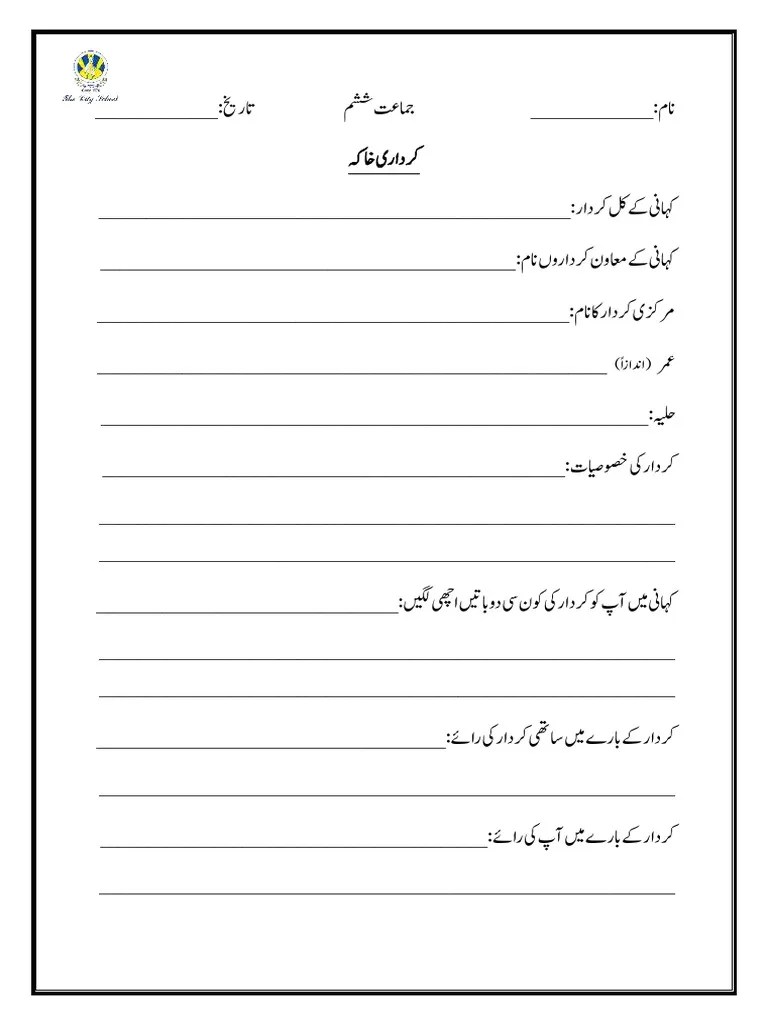 The City School
نام:_____________ جماعت ششم تاریخ:_____________
کرداری خاکہ
کہانی کے کل کردار:_____________
کہانی کے معاون کرداروں نام:_____________
مرکزی کردار کا نام:_____________
عمر (اندازاً) _____________
حلیہ:_____________
کردار کی خصوصیات:_____________
کہانی میں آپ کو کردار کی کون سی دو باتیں اچھی لگیں:_____________
کردار کے بارے میں ساتھی کردار کی رائے:_____________
کردار کے بارے میں آپ کی رائے:_____________